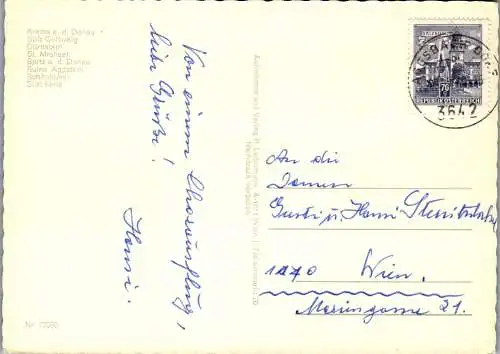 Krems a. d. Donau
Stift Göttweig
Dürnstein
St. Michael
Spitz a. d. Donau
Ruine Aggstein
Schönbühel
Stift Melk
Von einem Chorausflug,
liebe Grüße!
Hansi.
Nachdruck verboten
REPUBLIK ÖSTERREICH
3642
An die
Damen
Gusti u. Hansi
1170 Wien
Mariengasse 21.